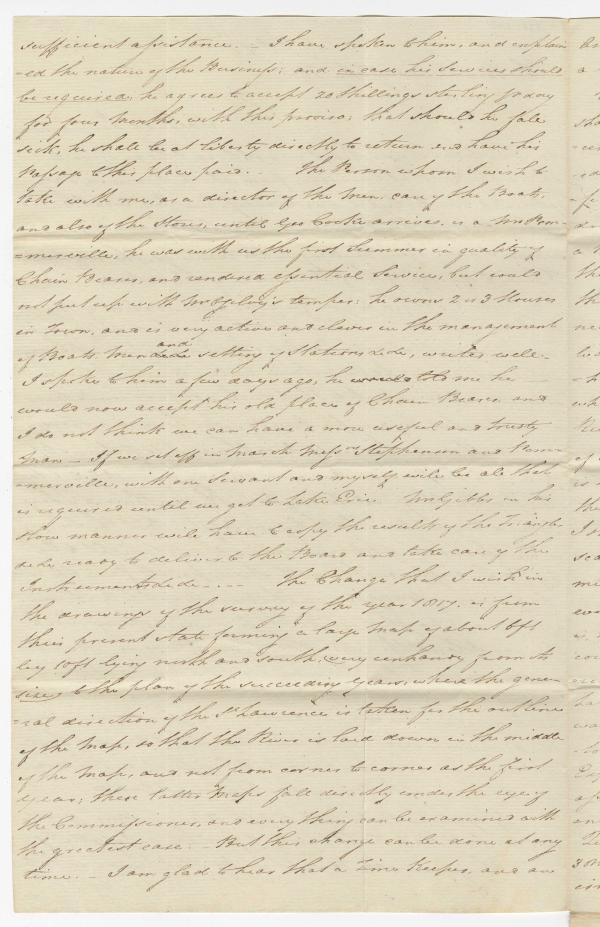 sufficient assistance. – I have spoken to him, and explain
-ed the nature of the Business; and in case his Services should
be required, he agrees to accept 20 shillings sterling pr day
for four months, with this proviso; that should he fall
sick, he shall be at liberty directly to return and have his
Passage to this place paid. – The Person whom I wish to
take with me, as a director of the Men, care of the Boats,
and also of the Stores, until Geo Cooke arrives, is a Mr Pom-
=merville, he was with us the first Summer in quality of
Chain Bearer, and rendered essential Service, but could
not put up with Mr Ogilvy's temper: he owns 2 or 3 Houses
in Town, and is very active and clever in the management
of Boats Men and setting of Stations &c &c, writes well –
I spoke to him a few days ago, he told me he
would now accept his old place of Chain Bearer and
I do not think we can have a more useful and trusty
Man – If we set off in March Messrs Stephenson and Pom-
=merville, with one Servant and myself will be all that
is required until we get to Lake Erie. Mr Gibbs in his
slow manner will have to copy the results of the Triangles
&c &c ready to deliver to the Board and take care of the
Instruments &c &c – The Change that I wish in
the drawings of the survey of the year 1817. is from
their present state forming a large Map of about 6ft
by 10ft lying north and south, very unhandy from its
size, to the plan of the succeeding Years, where the gene-
=ral direction of the St Lawrence is taken for the outline
of the Map, so that the River is laid down in the middle
of the Map, and not from corner to corner as the first
year; these latter Maps fall directly under the eye of
the Commissioner, and every thing can be examined with
the greatest ease. But this change can be done at any
time. – I am glad to hear that a Time Keeper, and an